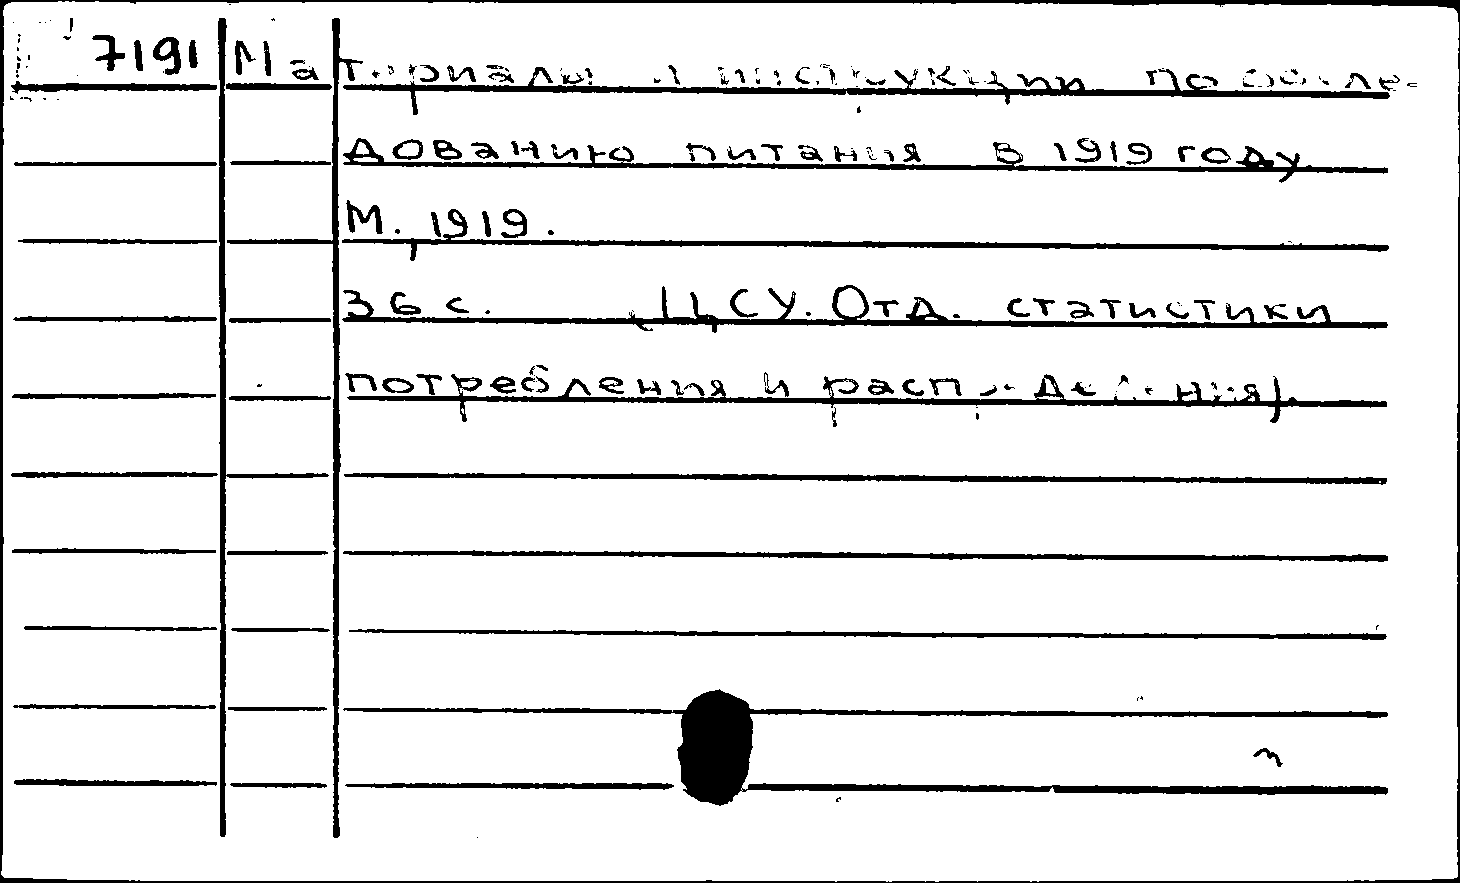 7191 Материалы и инструкции по обсле-
дованию питания в 1919 году.
М., 1919.
36 с. (ЦСУ. Отд. статистики
потребления и распределения).